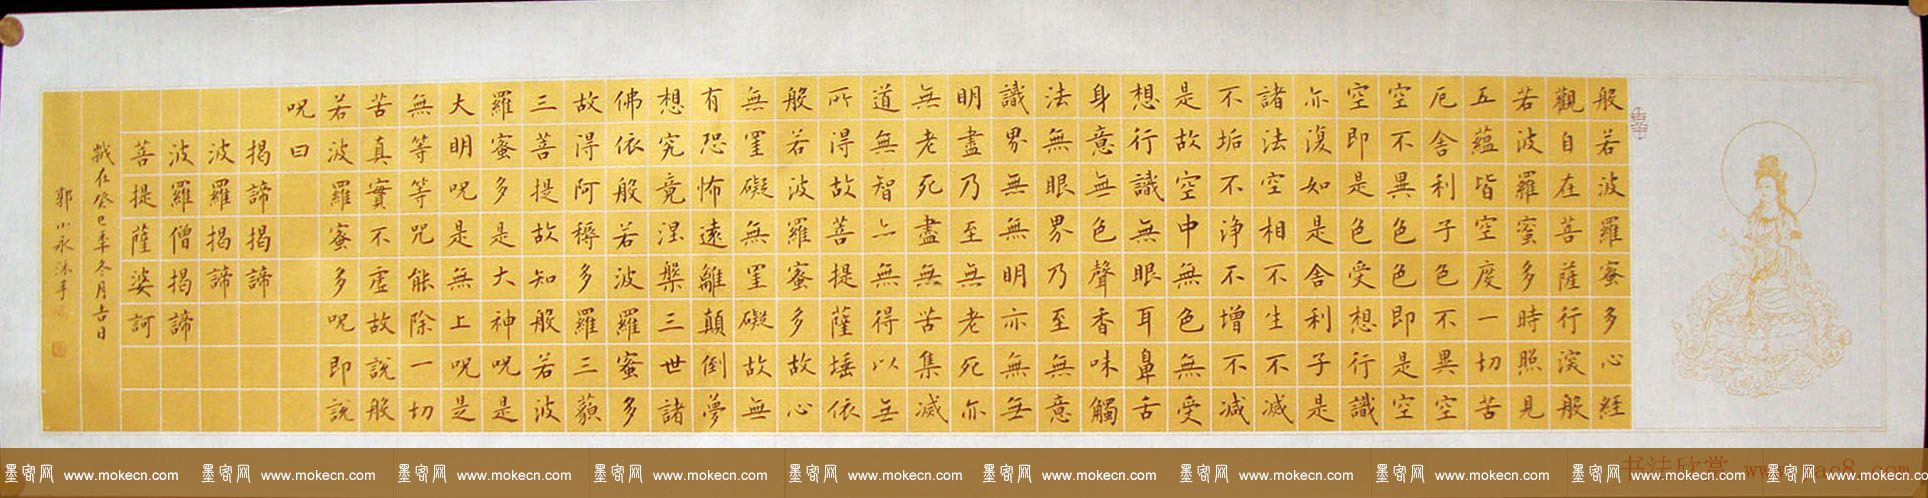 般若波羅蜜多心經
觀自在菩薩行深般
若波羅蜜多時照見
五蘊皆空度一切苦
厄舍利子色不異空
空不異色色即是空
空即是色受想行識
亦復如是舍利子是
諸法空相不生不滅
不垢不净不增不减
是故空中無色無受
想行識無眼耳鼻舌
身意無色聲香味觸
法無眼界乃至無意
識界無無明亦無無
明盡乃至無老死亦
無老死盡無苦集滅
道無智亦無得以無
所得故菩提薩埵依
般若波羅蜜多故心
無罣礙無罣礙故無
有恐怖遠離顛倒夢
想究竟涅槃三世諸
佛依般若波羅蜜多
故得阿耨多羅三藐
三菩提故知般若波
羅蜜多是大神咒是
大明咒是無上咒是
無等等咒能除一切
苦真實不虛故說般
若波羅蜜多咒即說
咒曰
揭諦揭諦
波羅揭諦
波羅僧揭諦
菩提薩婆訶
歲在癸巳年冬月吉日
郭小永沐手
墨客网 www.mokecn.com 墨客网 www.mokecn.com 墨客网 www.mokecn.com 墨客网 www.mokecn.com 墨客网 www.mokecn.com 墨客网 www.mokecn.com 墨客网 www.mokecn.com 墨客网 www.mokecn.com 墨客网 www.mokecn.com 墨客网 www.mokecn.com
书法欣赏